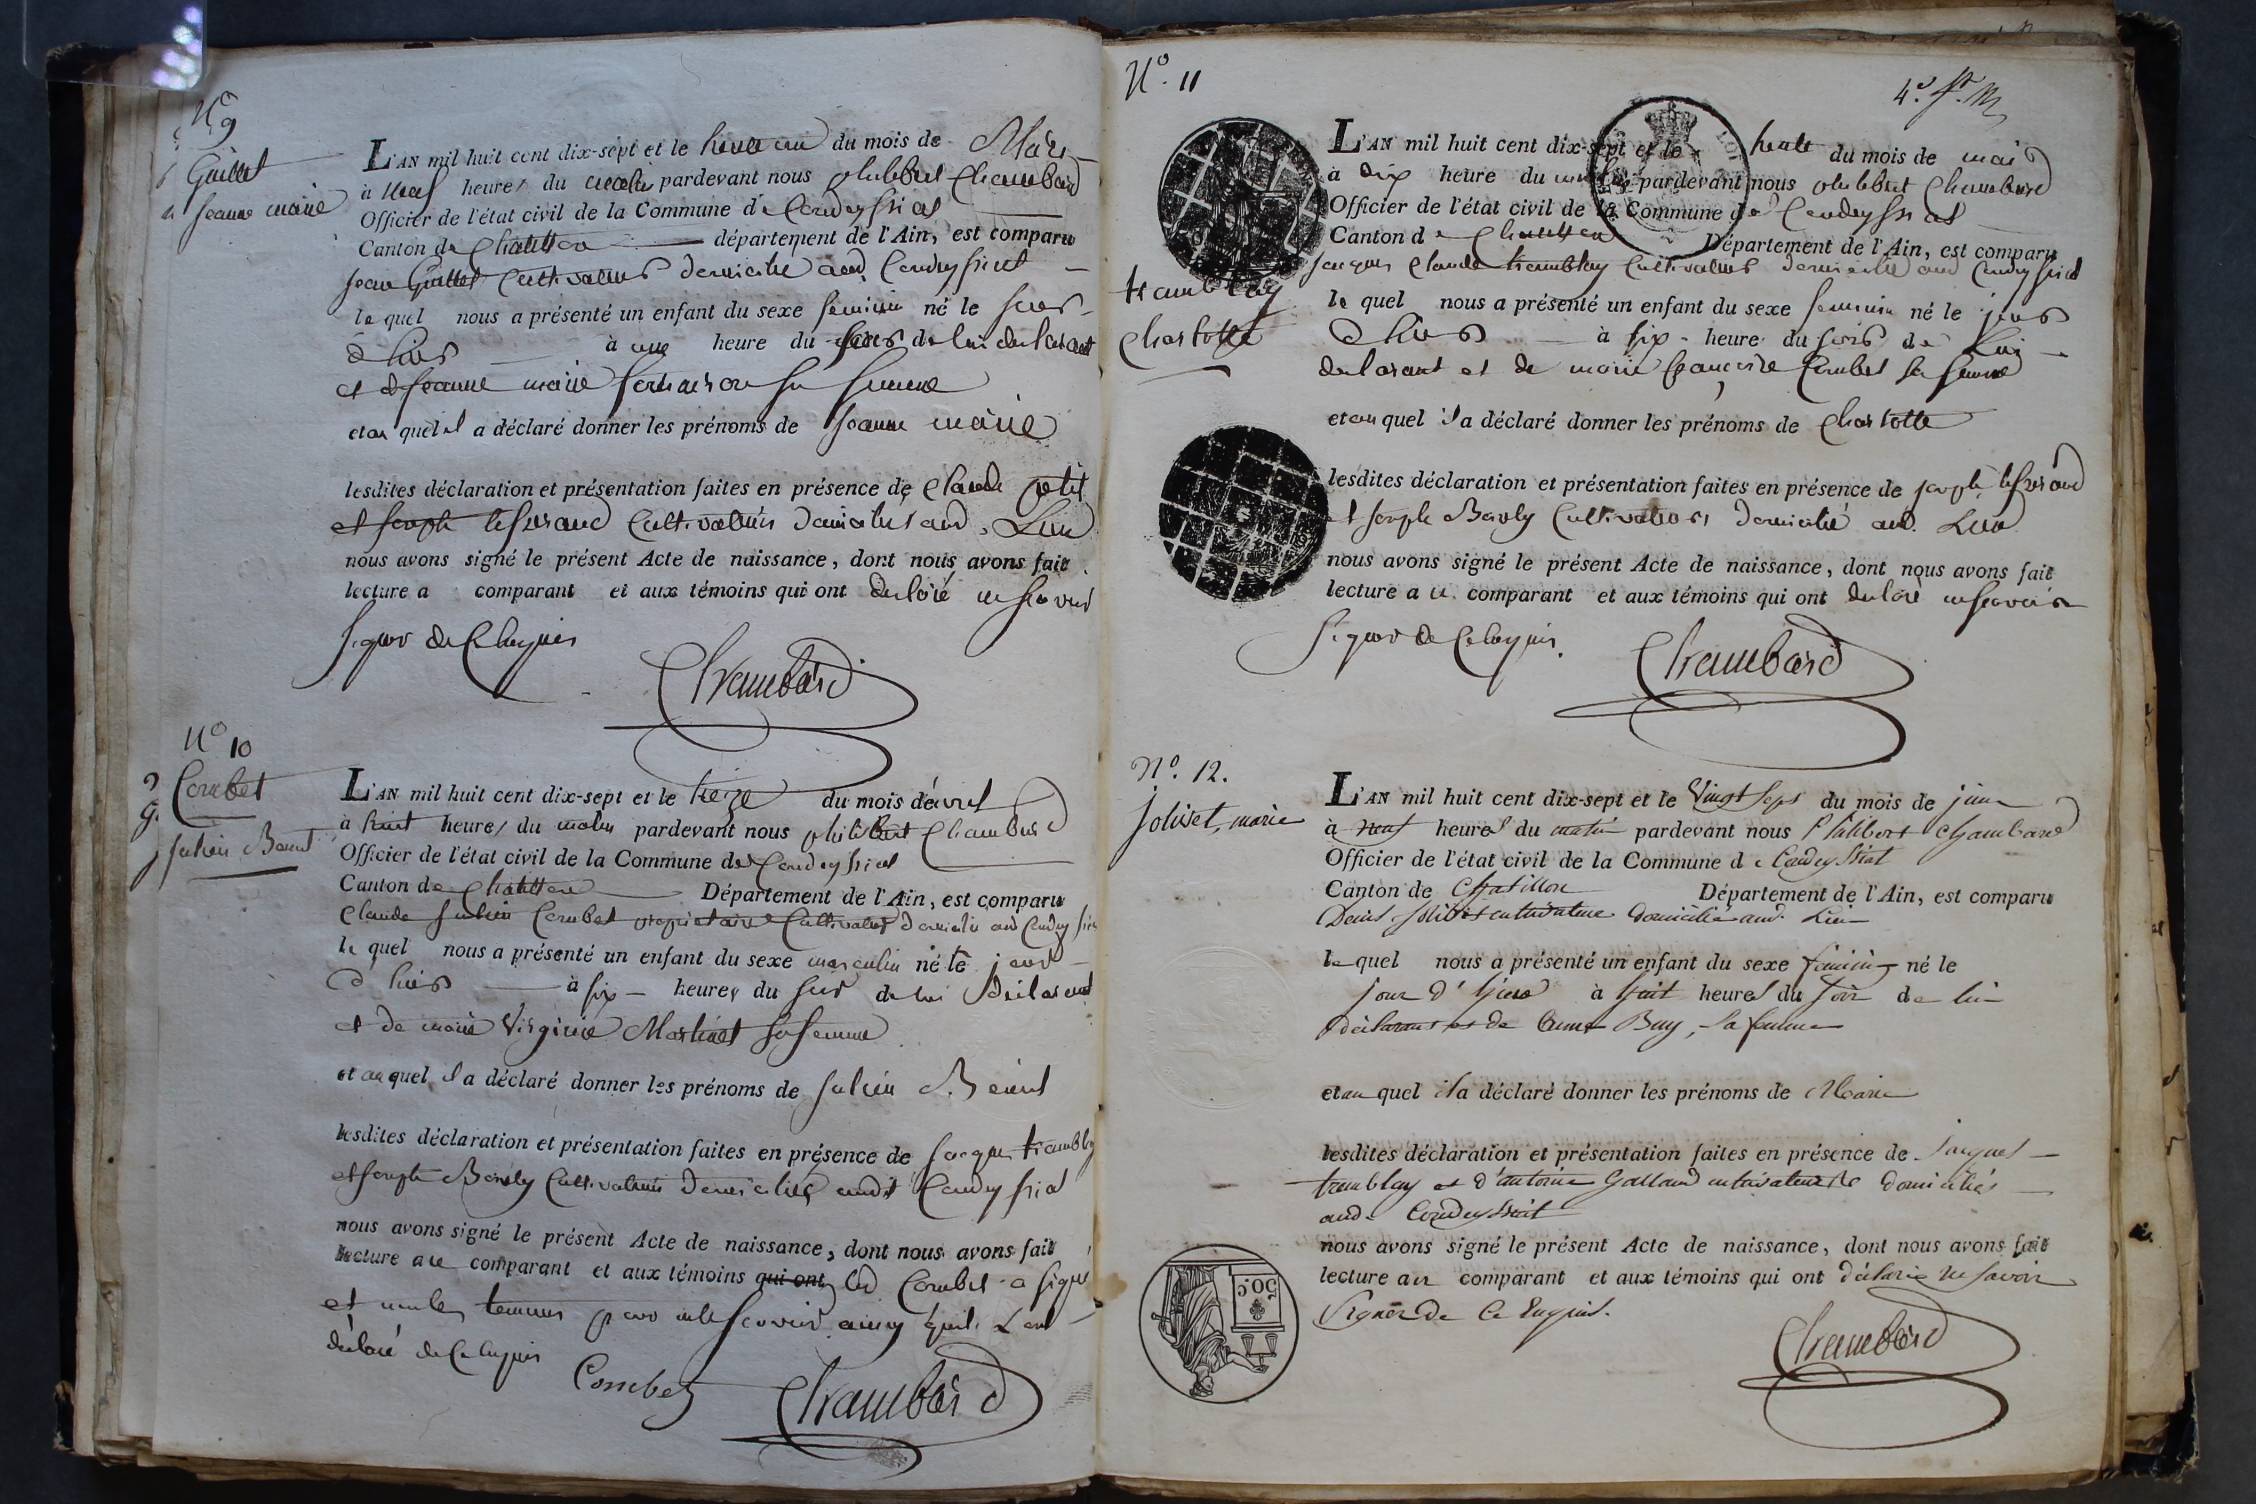 N° 9
Guillet
Jeanne marie
L'AN mil huit cent dix-sept et le trente un du mois de Mars
à neuf heures du matin pardevant nous philibert Chambard
Officier de l'état civil de la Commune de Condeyssiat
Canton de Chatillon département de l'Ain, est comparu
Jean Guillet Cultivateur domicilié aud. Condeyssiat
lequel nous a présenté un enfant du sexe feminin né le jour
d'hier à une heure du soir de lui declarant
et de Jeanne marie sa femme
et au quel il a déclaré donner les prénoms de Jeanne marie
lesdites déclaration et présentation faites en présence de Claude petit
et Joseph Cultivateurs domiciliés aud. Lieu
nous avons signé le présent Acte de naissance, dont nous avons fait
lecture a comparant et aux témoins qui ont declaré ne savoir
signer de Ce Enquis
Chambard
N° 10
Combet
g.
Julien Benoit
L'AN mil huit cent dix-sept et le treize du mois d'avril
à huit heures du matin pardevant nous philibert Chambard
Officier de l'état civil de la Commune de Condeyssiat
Canton de Chatillon Département de l'Ain, est comparu
Claude Julien Combet propriétaire Cultivateur domicilié aud Condeyssiat
le quel nous a présenté un enfant du sexe masculin né le jour
d'hier à six heures du soir de lui Déclarant
et de marie Virginie Martinet sa femme
et au quel il a déclaré donner les prénoms de Julien Benoit
lesdites déclaration et présentation faites en présence de Jacques tremblay
et Joseph Borsly Cultivateurs domiciliés audit Condeyssiat
nous avons signé le présent Acte de naissance, dont nous avons fait
lecture au comparant et aux témoins qui ont led Combet a signé
et non les temoins pour ne le Scavoir ainsy qu'ils L'ont
déclaré de Ce Enquis
Combet
Chambard
N°. 11
4e. ft. M
tremblay
Charlotte
L'AN mil huit cent dix-sept et le trente du mois de mai
à dix heure du matin pardevant nous philibert Chambard
Officier de l'état civil de la Commune de Condeyssiat
Canton de Chatillon Département de l'Ain, est comparu
Jacques Claude tremblay Cultivateur domicilié aud Condeyssiat
le quel nous a présenté un enfant du sexe feminin né le jour
d'hier à six heure du soir de Lui
declarant et de marie françoise Combet sa femme
et au quel il a déclaré donner les prénoms de Charlotte
lesdites déclaration et présentation faites en présence de joseph
et Joseph Borsly Cultivateurs domicilié aud. Lieu
nous avons signé le présent Acte de naissance, dont nous avons fait
lecture a u comparant et aux témoins qui ont declaré ne scavoir
signer de Ce enquis.
Chambard
N°. 12.
jolivet, marie
L'AN mil huit cent dix-sept et le Vingt sept du mois de juin
à neuf heures du matin pardevant nous Philibert Chambard
Officier de l'état civil de la Commune de Condeyssiat
Canton de Chatillon Département de l'Ain, est comparu
Denis Jolivet cultivateur domicilié aud. Lieu
le quel nous a présenté un enfant du sexe féminin né le
jour d'hier à huit heures du soir de lui
déclarant et de Anne Buy, sa femme
et au quel il a déclaré donner les prénoms de Marie
lesdites déclaration et présentation faites en présence de Jacques
tremblay et d'antoine Galland cultivateurs domiciliés
aud. Condeyssiat
nous avons signé le présent Acte de naissance, dont nous avons fait
lecture au comparant et aux témoins qui ont déclaré ne savoir
Signer de Ce Enquis.
50c.
Chambard